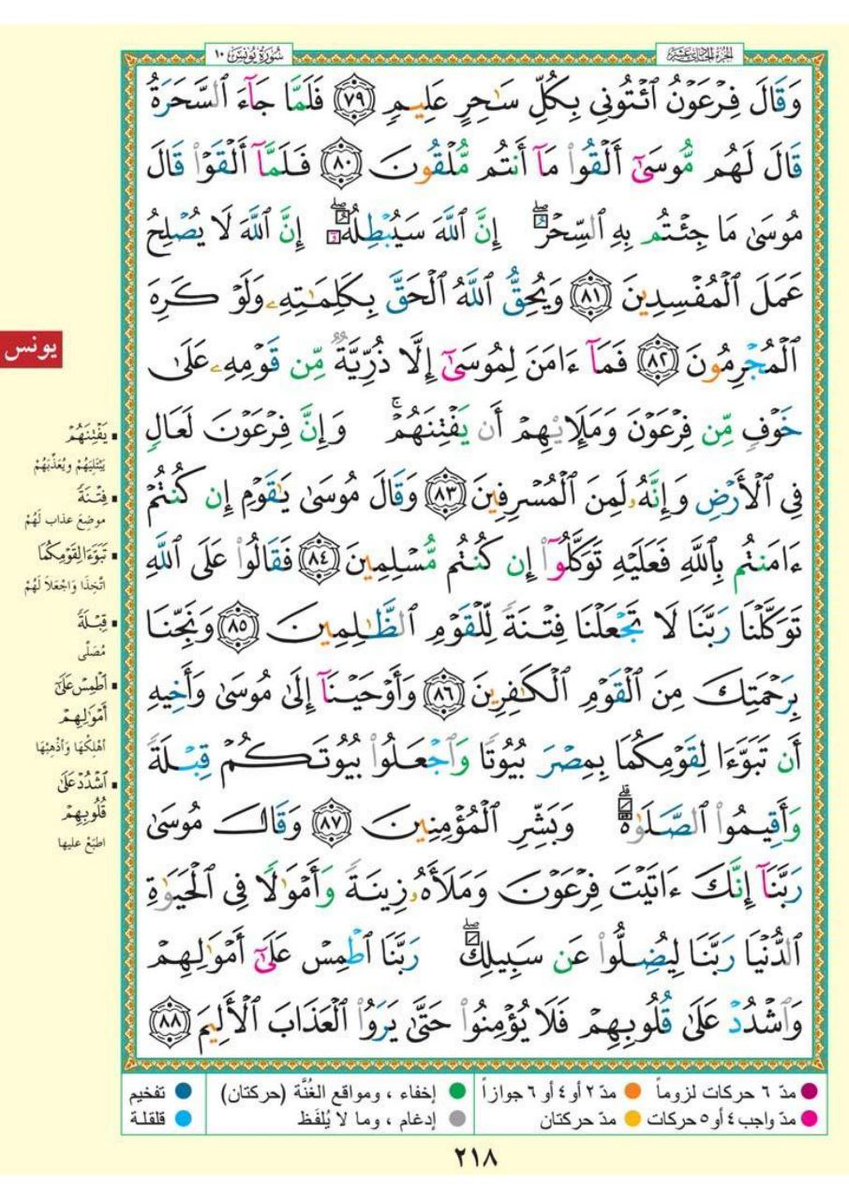 سُورَةُ يُونُسَ ١٠
الجُزءُ الحَادِي عَشَرَ
وَقَالَ فِرْعَوْنُ ٱئْتُونِى بِكُلِّ سَـٰحِرٍ عَلِيمٍ ۝٧٩ فَلَمَّا جَآءَ ٱلسَّحَرَةُ
قَالَ لَهُم مُّوسَىٰٓ أَلْقُوا۟ مَآ أَنتُم مُّلْقُونَ ۝٨٠ فَلَمَّآ أَلْقَوْا۟ قَالَ
مُوسَىٰ مَا جِئْتُم بِهِ ٱلسِّحْرُ ۖ إِنَّ ٱللَّهَ سَيُبْطِلُهُۥٓ ۖ إِنَّ ٱللَّهَ لَا يُصْلِحُ
عَمَلَ ٱلْمُفْسِدِينَ ۝٨١ وَيُحِقُّ ٱللَّهُ ٱلْحَقَّ بِكَلِمَـٰتِهِۦ وَلَوْ كَرِهَ
ٱلْمُجْرِمُونَ ۝٨٢ فَمَآ ءَامَنَ لِمُوسَىٰٓ إِلَّا ذُرِّيَّةٌ مِّن قَوْمِهِۦ عَلَىٰ
خَوْفٍ مِّن فِرْعَوْنَ وَمَلَإِي۟هِمْ أَن يَفْتِنَهُمْ ۚ وَإِنَّ فِرْعَوْنَ لَعَالٍ
فِى ٱلْأَرْضِ وَإِنَّهُۥ لَمِنَ ٱلْمُسْرِفِينَ ۝٨٣ وَقَالَ مُوسَىٰ يَـٰقَوْمِ إِن كُنتُمْ
ءَامَنتُم بِٱللَّهِ فَعَلَيْهِ تَوَكَّلُوٓا۟ إِن كُنتُم مُّسْلِمِينَ ۝٨٤ فَقَالُوا۟ عَلَى ٱللَّهِ
تَوَكَّلْنَا رَبَّنَا لَا تَجْعَلْنَا فِتْنَةً لِّلْقَوْمِ ٱلظَّـٰلِمِينَ ۝٨٥ وَنَجِّنَا
بِرَحْمَتِكَ مِنَ ٱلْقَوْمِ ٱلْكَـٰفِرِينَ ۝٨٦ وَأَوْحَيْنَآ إِلَىٰ مُوسَىٰ وَأَخِيهِ
أَن تَبَوَّءَا لِقَوْمِكُمَا بِمِصْرَ بُيُوتًا وَٱجْعَلُوا۟ بُيُوتَكُمْ قِبْلَةً
وَأَقِيمُوا۟ ٱلصَّلَوٰةَ ۗ وَبَشِّرِ ٱلْمُؤْمِنِينَ ۝٨٧ وَقَالَ مُوسَىٰ
رَبَّنَآ إِنَّكَ ءَاتَيْتَ فِرْعَوْنَ وَمَلَأَهُۥ زِينَةً وَأَمْوَٰلًا فِى ٱلْحَيَوٰةِ
ٱلدُّنْيَا رَبَّنَا لِيُضِلُّوا۟ عَن سَبِيلِكَ ۖ رَبَّنَا ٱطْمِسْ عَلَىٰٓ أَمْوَٰلِهِمْ
وَٱشْدُدْ عَلَىٰ قُلُوبِهِمْ فَلَا يُؤْمِنُوا۟ حَتَّىٰ يَرَوُا۟ ٱلْعَذَابَ ٱلْأَلِيمَ ۝٨٨
يونس
يَفْتِنَهُمْ
يَبْتَلِيَهُمْ ويُعَذِّبَهُمْ
فِتْنَةً
موضِعَ عذاب لَهُمْ
تَبَوَّءَا لِقَوْمِكُمَا
اتَّخِذَا وَاجْعَلاَ لَهُمْ
قِبْلَةً
مُصَلًّى
ٱطْمِسْ عَلَىٰٓ
أَمْوَٰلِهِمْ
أهْلِكْهَا وَأذْهِبْهَا
ٱشْدُدْ عَلَىٰ
قُلُوبِهِمْ
اطبَعْ عليها
مدّ ٦ حركات لزوماً
مدّ ٢ أو ٤ أو ٦ جوازاً
إخفاء ، ومواقع الغُنَّة (حركتان)
تفخيم
مدّ واجب ٤ أو ٥ حركات
مدّ حركتان
إدغام ، وما لا يُلفَظ
قلقلة
٢١٨